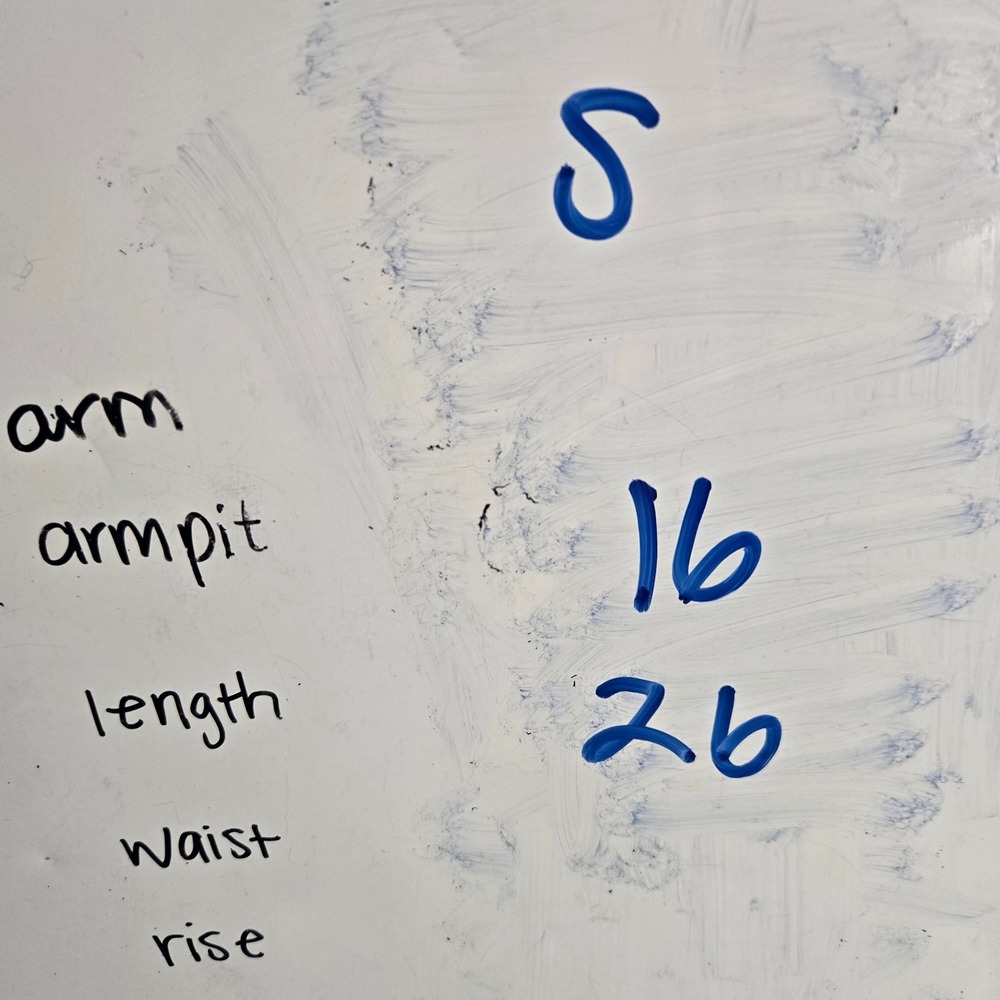 S
arm
armpit 16
length 26
waist
rise